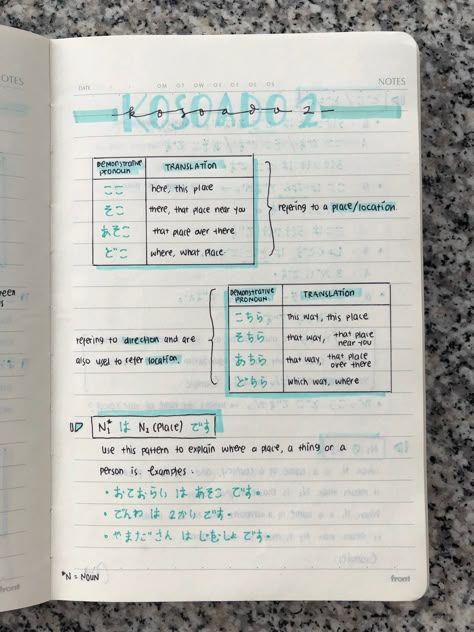 DATE
NOTES
KOSOADO 2
kosoado 2
DEMONSTRATIVE PRONOUN TRANSLATION
ここ here, this place
そこ there, that place near you
あそこ that place over there
どこ where, what place
refering to a place/location
DEMONSTRATIVE PRONOUN TRANSLATION
こちら this way, this place
そちら that way, that place near you
あちら that way, that place over there
どちら which way, where
refering to direction and are
also used to refer location.
N₁* は N₂ (Place) です
Use this pattern to explain where a place, a thing or a
person is. Examples:
• おておらい は あそこ です.
• でんわ は 2かい です.
• やまださん は じむしょ です.
*N = NOUN
front